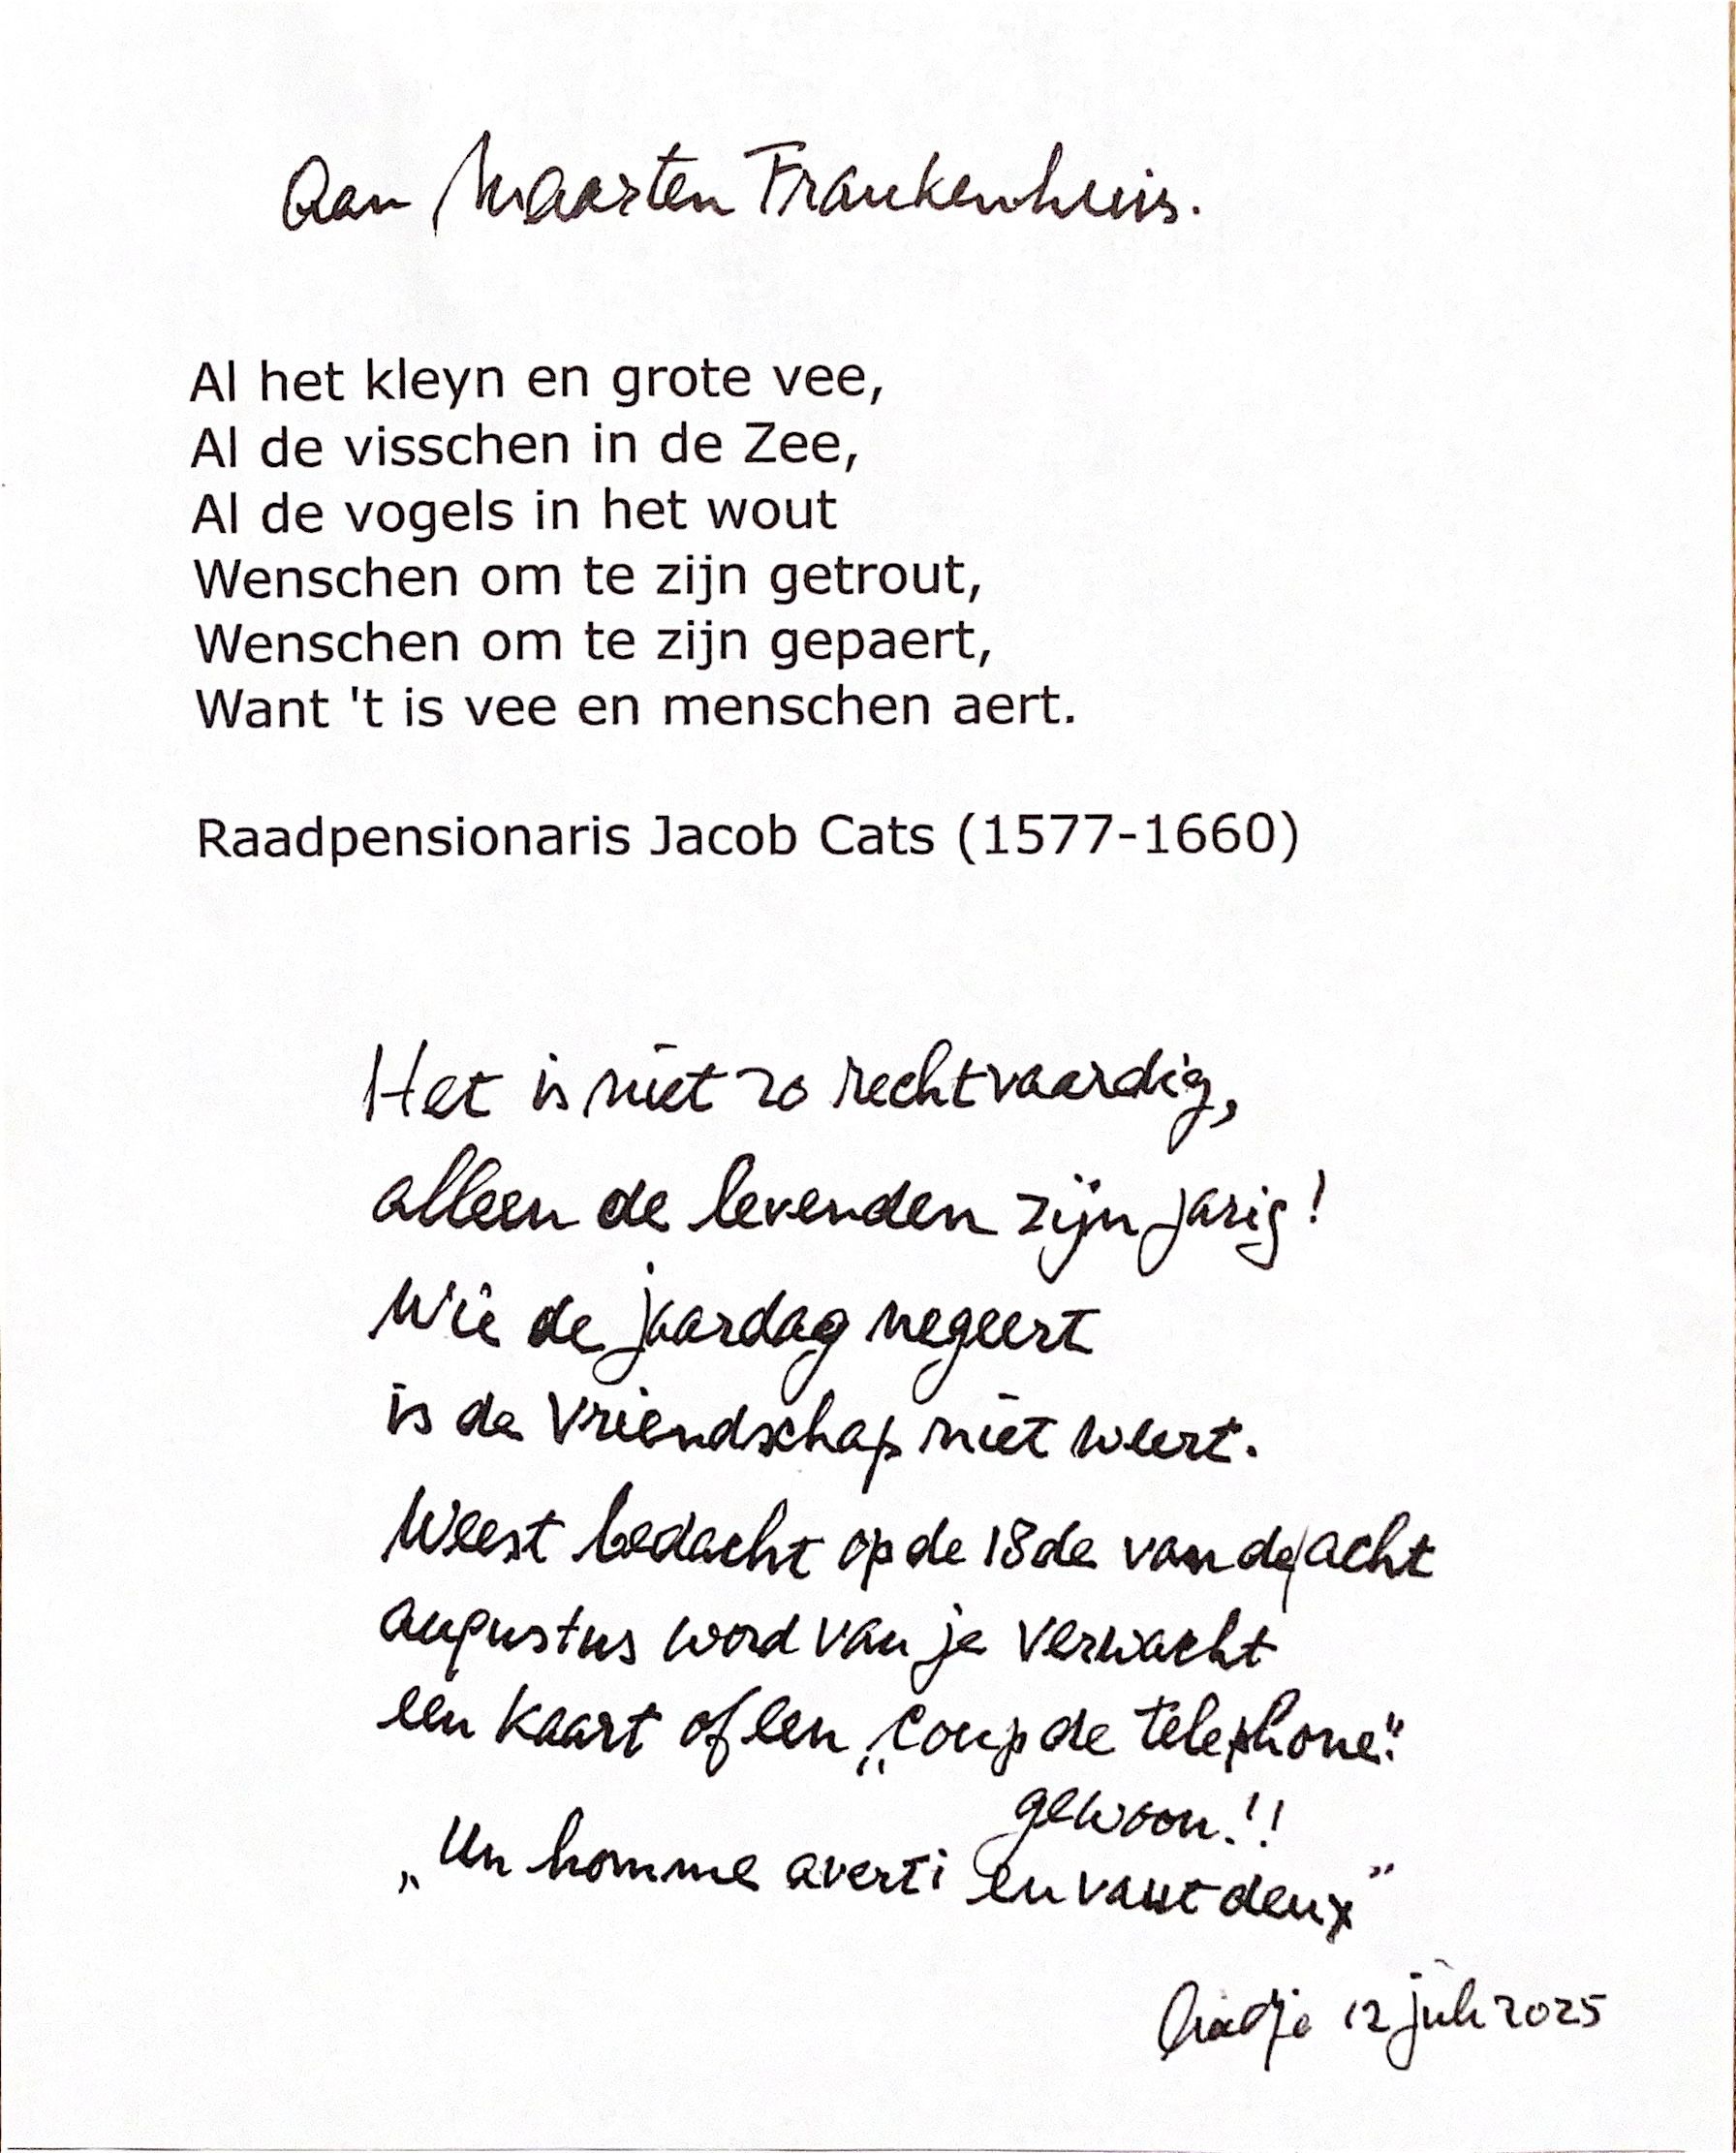 Aan Maarten Frankenhuis.
Al het kleyn en grote vee,
Al de visschen in de Zee,
Al de vogels in het wout
Wenschen om te zijn getrout,
Wenschen om te zijn gepaert,
Want 't is vee en menschen aert.
Raadpensionaris Jacob Cats (1577-1660)
Het is niet zo rechtvaardig,
alleen de levenden zijn jarig!
Wie de jaardag negeert
is de vriendschap niet weert.
Weest bedacht op de 18de van de acht
augustus word van je verwacht
een kaart of een „coup de telephone".
gewoon!!
„Un homme averti en vaut deux"
12 juli 2025